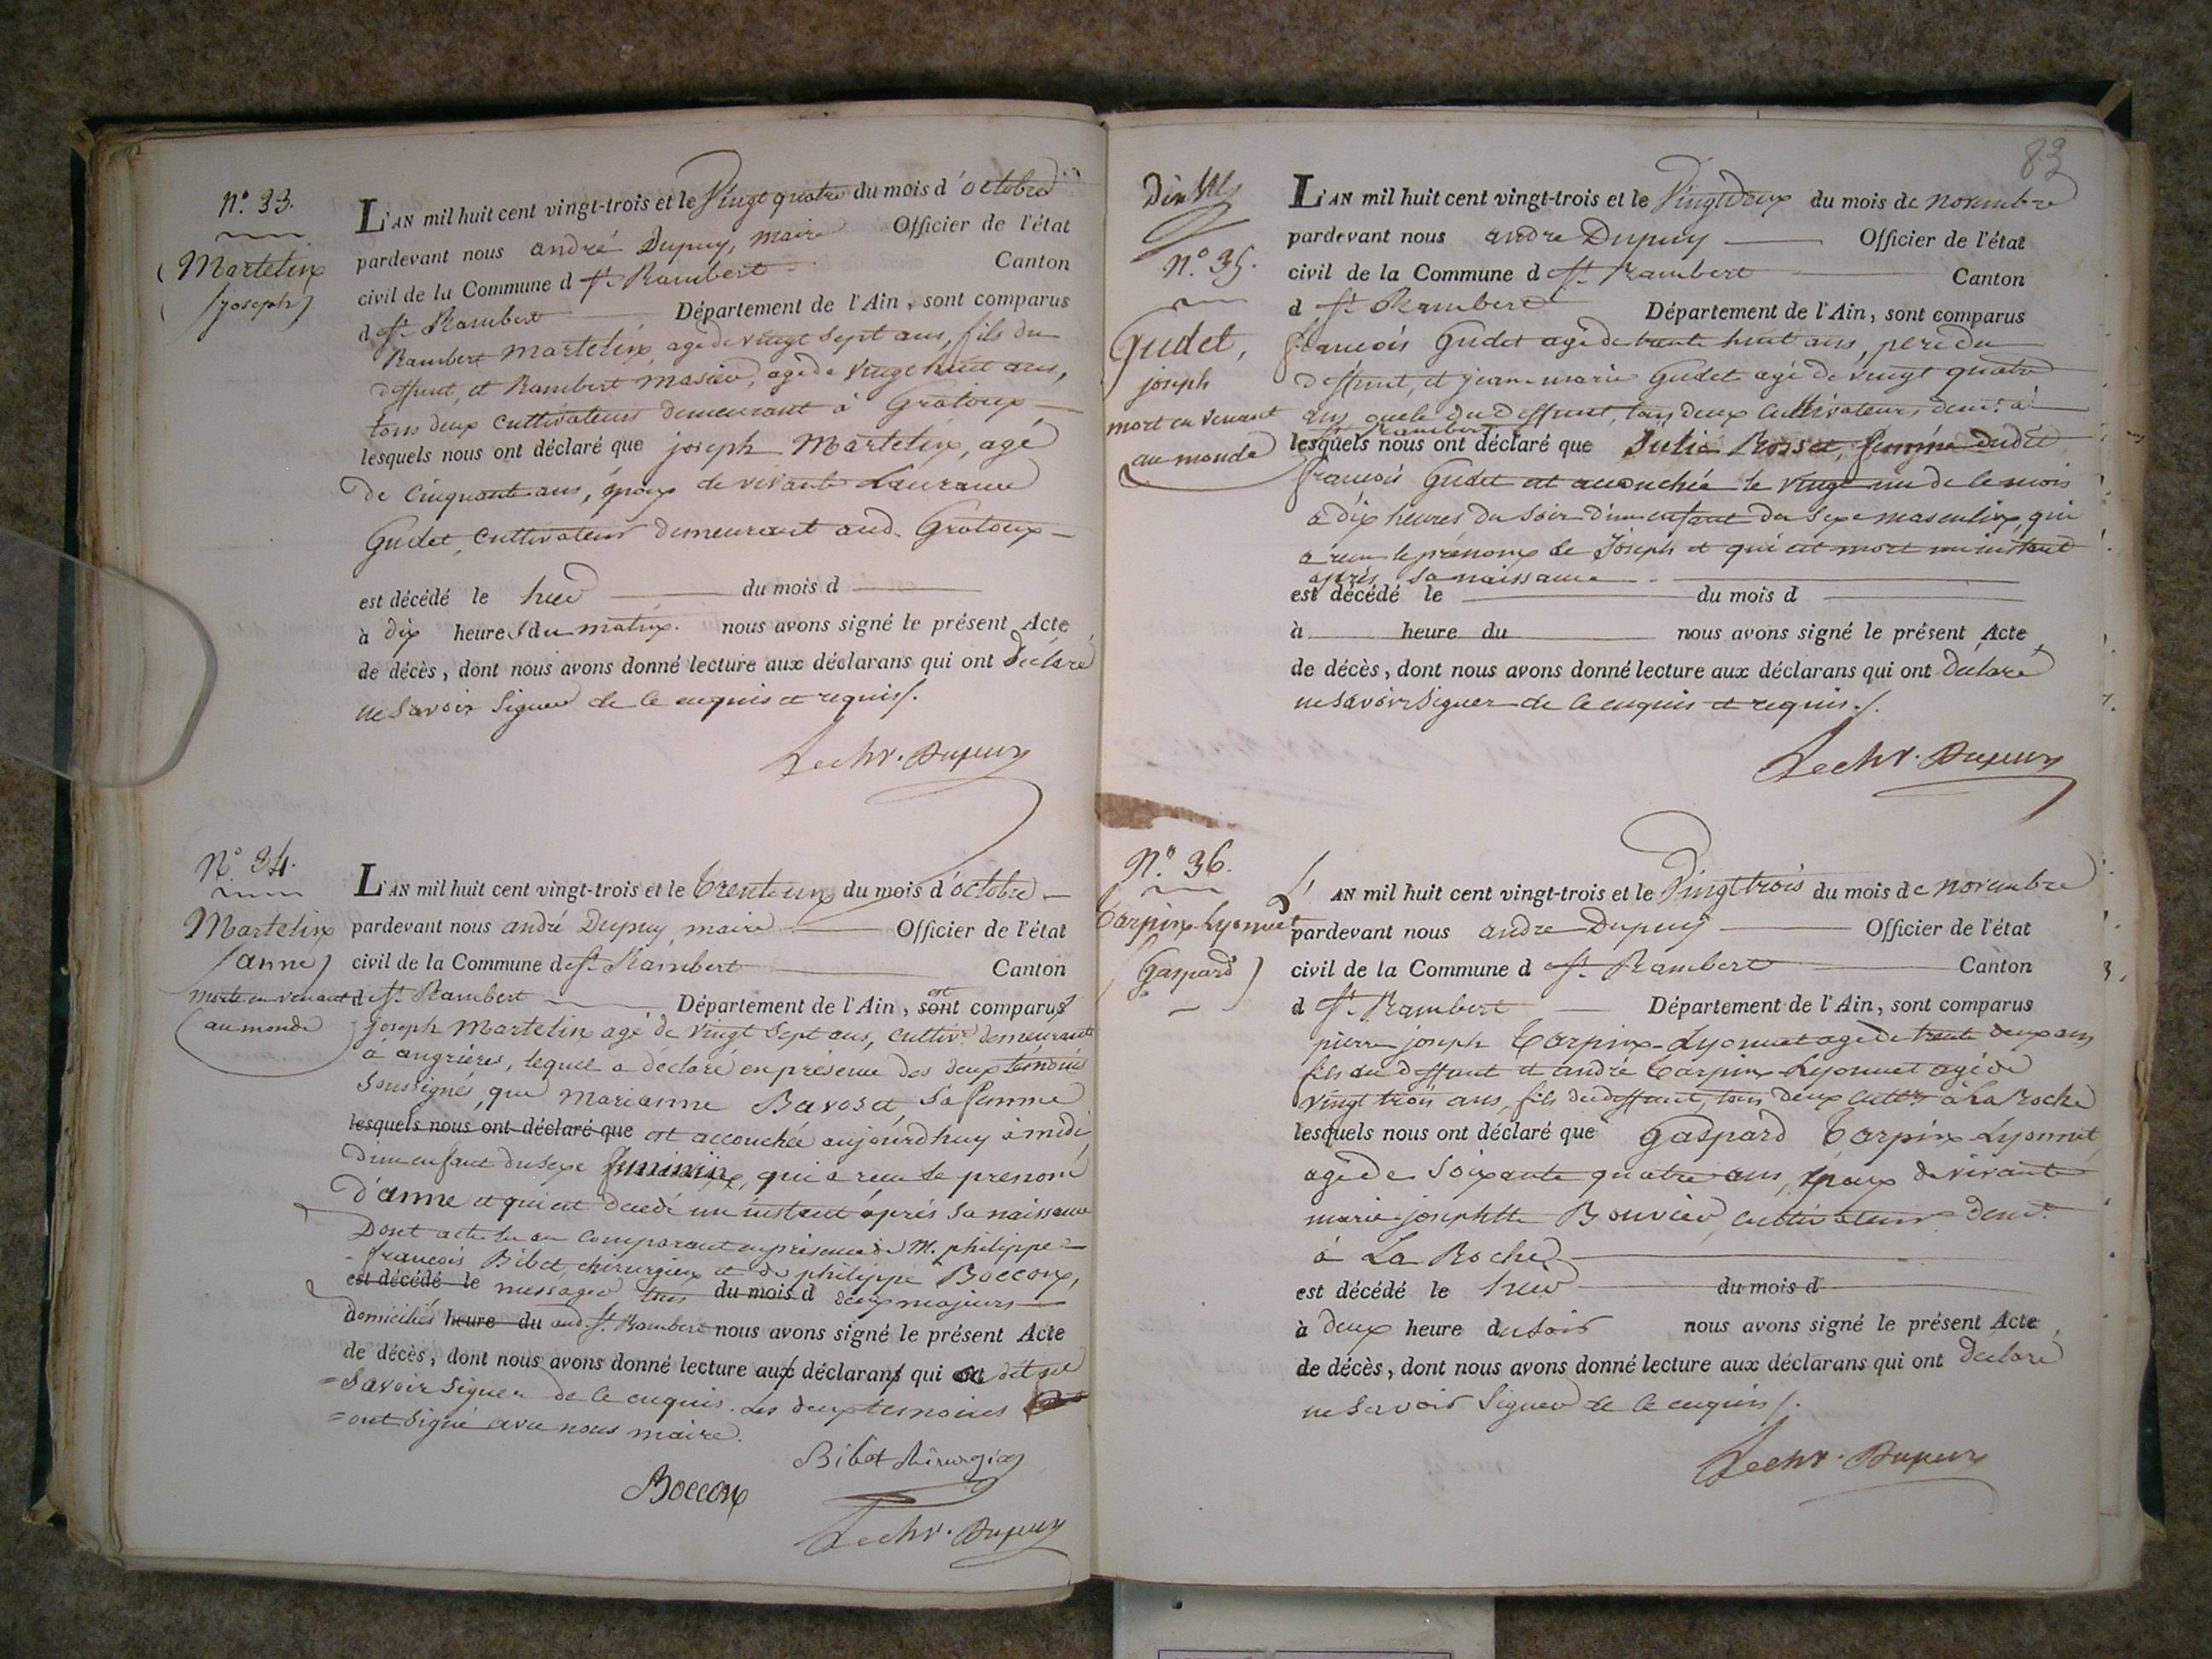 N.° 33.
Martelin
(joseph)
L'AN mil huit cent vingt-trois et le Vingt quatre du mois d'octobre
pardevant nous andré Dupuy, maire Officier de l'état
civil de la Commune d St. Rambert Canton
d St. Rambert Département de l'Ain, sont comparus
Rambert Martelin, agé de vingt sept ans, fils du
deffunt, et Rambert Masieu, agé de vingt huit ans,
tous deux cultivateurs demeurant à Gratoux
lesquels nous ont déclaré que joseph Martelin, agé
de cinquante ans, époux de vivante Laurance
Gudet, cultivateur demeurant aud. Gratoux
est décédé le hier du mois d
à dix heures du matin. nous avons signé le présent Acte
de décès, dont nous avons donné lecture aux déclarans qui ont déclaré
ne savoir signer de ce enquis et requis.
Le chr. Dupuy
N.° 34.
Martelin
(anne)
morte en venant
au monde
L'AN mil huit cent vingt-trois et le trente un du mois d'octobre
pardevant nous andré Dupuy maire Officier de l'état
civil de la Commune de St. Rambert Canton
de St. Rambert Département de l'Ain, sont est comparus
joseph Martelin agé de vingt sept ans, cultivr. demeurant
à angrières, lequel a déclaré en présence des deux témoins
soussignés, que Marianne Bavoset, sa femme
lesquels nous ont déclaré que est accouchée aujourdhuy à midi
d'un enfant du sexe feminin, qui a reçu le prenom
d'anne et qui est decedé un instant après sa naissance
Dont acte lu au comparant en présence de M. philippe
françois Bibet, chirurgien et de philippe Boccon,
est décédé le messager tous du mois d deux majeurs
domiciliés heure du aud. St. Rambert nous avons signé le présent Acte
de décès, dont nous avons donné lecture aux déclarans qui a dit ne
savoir signer de ce enquis. Les deux temoins
ont signé avec nous maire.
Bibet chirurgien
Boccon
Le chr. Dupuy
83
N.° 35.
Gudet,
joseph
mort en venant
au monde
L'AN mil huit cent vingt-trois et le Vingt deux du mois de novembre
pardevant nous andre Dupuy Officier de l'état
civil de la Commune d St. Rambert Canton
d St. Rambert Département de l'Ain, sont comparus
françois Gudet agé de trente huit ans, pere du
deffunt, et jean-marie Gudet agé de vingt quatre
ans, oncle du deffunt, tous deux cultivateurs, demt. à
St. Rambert
lesquels nous ont déclaré que Julie Rosset, femme dudit
françois Gudet est accouchée le vingt un de ce mois
à dix heures du soir d'un enfant du sexe masculin, qui
a reçu le prénom de Joseph et qui est mort un instant
après sa naissance
est décédé le du mois d
à heure du nous avons signé le présent Acte
de décès, dont nous avons donné lecture aux déclarans qui ont declaré
ne savoir signer de ce enquis et requis.
Le chr. Dupuy
N.° 36.
Carpin-Lyonnet
(Gaspard)
L'AN mil huit cent vingt-trois et le Vingt trois du mois de novembre
pardevant nous andre Dupuy Officier de l'état
civil de la Commune d St. Rambert Canton
d St. Rambert Département de l'Ain, sont comparus
pierre joseph Carpin-Lyonnet agé de trente deux ans
fils du deffunt et andré Carpin Lyonnet agé de
vingt trois ans, fils du deffunt, tous deux cultrs. à La Roche
lesquels nous ont déclaré que Gaspard Carpin-Lyonnet,
agé de soixante quatre ans, époux de vivante
marie-josephtte Bouvier, cultivateur demt.
à La Roche
est décédé le hier du mois d
à deux heure du soir nous avons signé le présent Acte
de décès, dont nous avons donné lecture aux déclarans qui ont declaré
ne savoir signer de ce enquis.
Le chr. Dupuy